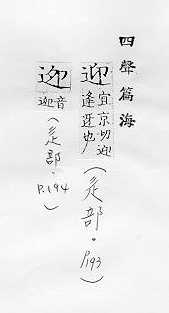 四聲篇海
迎
宜京切迎
逢迓也
(辵部。P.193)
音
迎
(辵部.P.194)